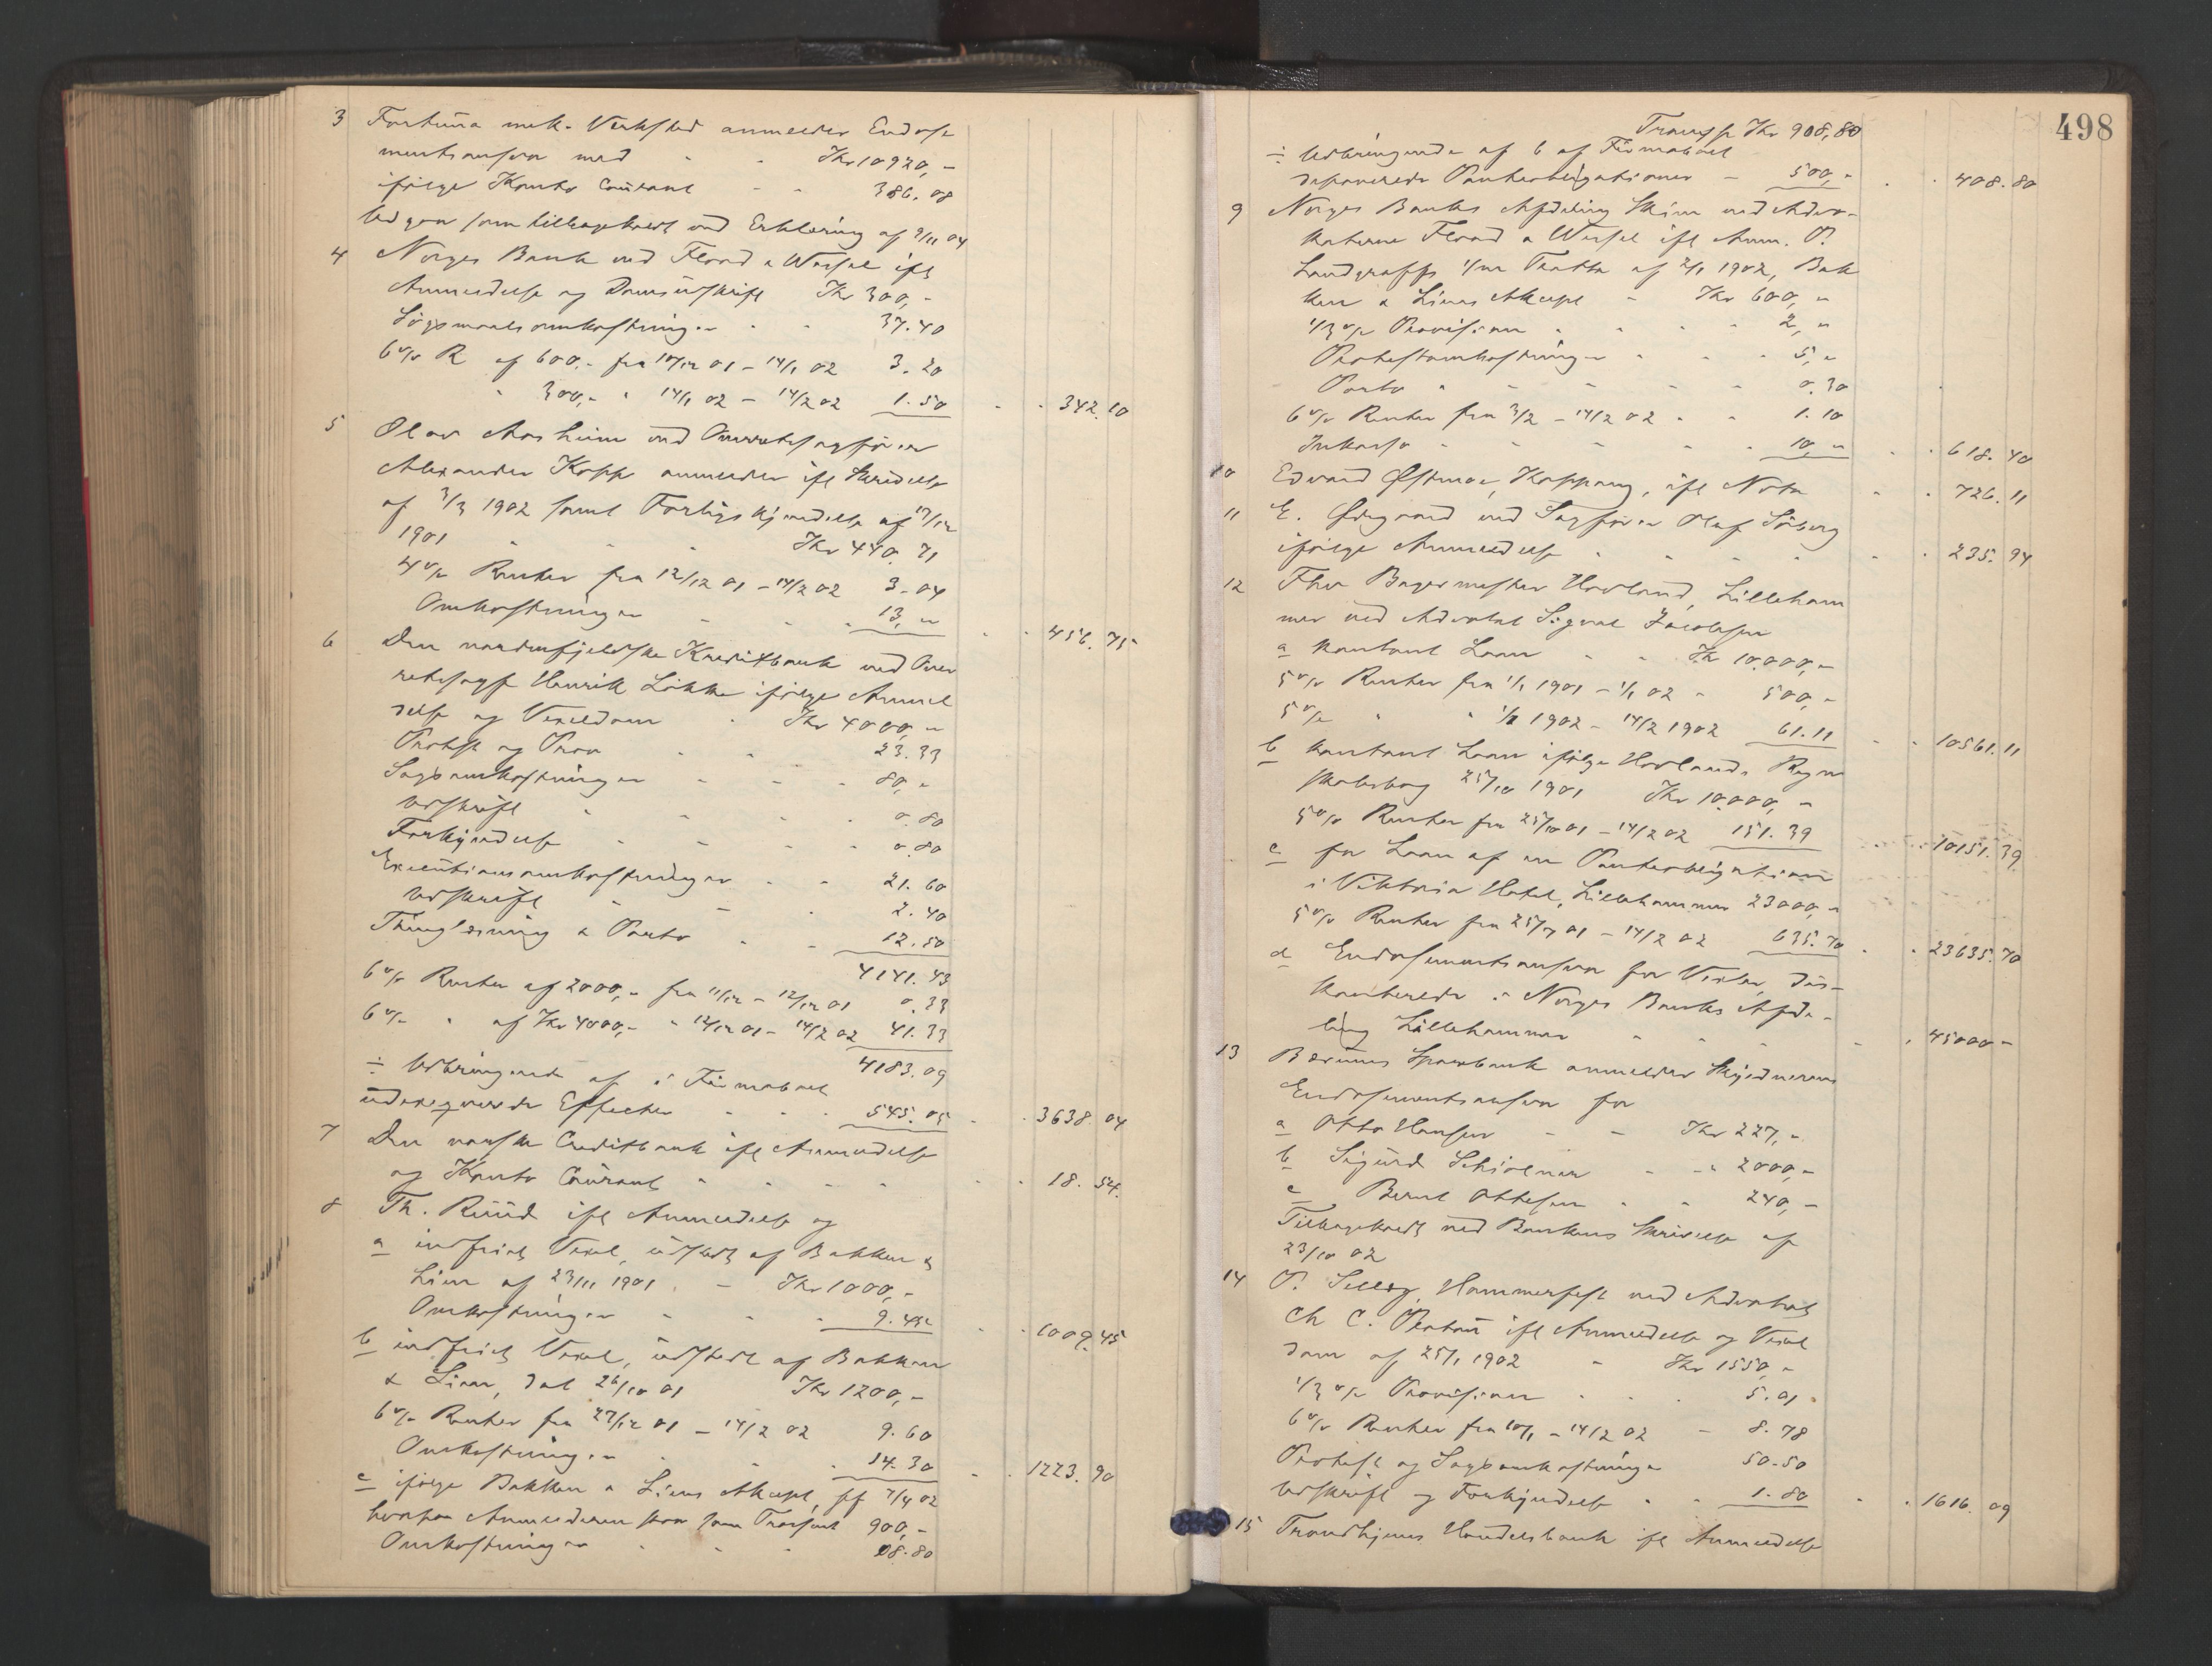 3 Fortuna mek. Verksted anmelder Endosse
mentsansvar med - - Kr 10920,-
ifølge Konto Courant - - 386.08
Udgaar som tilbagekaldt ved Erklæring af 9/11 04
4 Norges Bank ved Flood & Wessel ifl
Anmeldelse og Domsudskrift Kr 300,-
Søgsmaalsomkostninger - - 37.40
6 % R af 600,- fra 10/12 01 - 14/1 02 3.20
" 300,- " 14/1 02 - 14/2 02 1.50 - - 342.10
5 Olav Aasheim ved Overretssagfører
Alexander Kopp anmelder ifl Skrivelse
af 3/3 1902 samt Forligskjendelse af 17/12
1901 - - - Kr 440.71
4 % Renter fra 12/12 01 - 14/2 02 3.04
Omkostninger - - - 13,- - - 456.75
6 Den nordenfjeldske Kreditbank ved Over
retssagf Henrik Løkke ifølge Anmel
delse og Vexeldom - Kr 4000,-
Protest og Prov - - 23.33
Sagsomkostninger - - - 80,-
Udskrift - - - - 0.80
Forkyndelse - - - - 0.80
Executionsomkostninger - - 21.60
Udskrift - - - 2.40
Thinglæsning & Porto - - 12.50
4141.43
6 % Renter af 2000,- fra 11/12 - 12/12 01 0.33
6 % " af Kr 4000,- " 12/12 01 - 14/2 02 41.33
4183.09
÷ Udbringende af i Firmaboet
udlegverede Effecter - - - 545.05 - - 3638.04
7 Den norske Creditbank ifl Anmeldelse
og Konto Courant - - - - - - 18.54.
8 Th. Ruud ifl Anmeldelse og
a indfriet Vexel, udstedt af Bakken &
Lien af 23/11 1901 - Kr 1000,-
Omkostninger - - - 9.45 - - 1009.45
b indfriet Vexel, udstedt af Bakken
& Lien, dat 26/10 01 Kr 1200,-
6 % Renter fra 27/12 01 - 14/2 02 9.60
Omkostninger - - - 14.30 - - 1223.90
c ifølge Bakken & Liens Akcept, pf 7/4 02
hvorpaa Anmelderen staar som Trassent 900,-
Omkostninger - - - 08.80
498
Transp Kr 908,80
÷ Udbringende af 6 af Firmaboet
deponerede Panteobligationer - 500,- - - 408.80
9 Norges Banks Afdeling Skien ved Advo-
katerne Flood & Wessel ifl Anm. P.
Landgraffs Tratta af 2/1 1902, Bak
ken & Liens Akcept - Kr 600,-
1/3 % Provision - - - - 2,-
Protestomkostninger - - - 5,-
Porto - - - - - 0.30
6 % Renter fra 3/2 - 14/2 02 - - 1.10
Inkasso - - - - - 10,- - - 618.40
10 Edvard Østmoe, Koppang, ifl Nota - - 726.11
11 E. Ødegaard ved Sagfører Olaf Søberg
ifølge Anmeldelse - - - - - - 235.94
12 Fhv Bagermester Hovland, Lilleham
mer ved Advokat Sigval Jacobsen
a kontant Laan - - Kr 10.000,-
5 % Renter fra 1/1 1901 - 1/1 02 - 500,-
5 % " " 1/1 1902 - 14/2 1902 61.11 - - 10561.11
b kontant Laan ifølge Hovlands Regn
skabsbog 25/10 1901 Kr 10.000,-
5 % Renter fra 25/10 01 - 14/2 02 151.39 - - 10151.39
c for Laan af en Panteobligation
i Viktoria Hotel, Lillehammer 23000,-
5 % Renter fra 25/7 01 - 14/2 02 635.70 - - 23635.70
d Endossementsansvar for Vexler, dis-
konterede i Norges Banks Afde-
ling Lillehammer - - - - - 45000 -
13 Bærums Sparebank anmelder Skyldnerens
Endossementsansvar for
a Otto Hansen - - Kr 227,-
b Sigurd Schiolner - - " 2000,-
c Bernt Ottesen - - 240,-
Tilbagekaldt ved Bankens Skrivelse af
23/10 02
14 P. Selleg, Hammerfest ved Advokat
Ch C. Platou ifl Anmeldelse og Vexel
dom af 25/1 1902 - Kr 1550,-
1/3 % Provision - - - 5.01
6 % Renter fra 10/1 - 14/2 02 - 8.78
Protest og Sagsomkostninger 50.50
Udskrift og Forkyndelse - - 1.80 - - 1616.09
15 Trondhjems Handelsbank ifl Anmeldelse